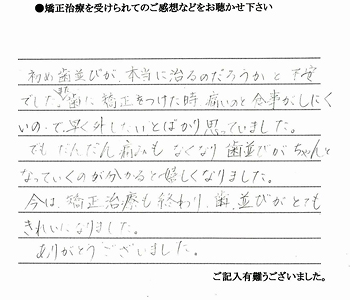 ●矯正治療を受けられてのご感想などをお聴かせ下さい
初め歯並びが、本当に治るのだろうかと不安
でした。歯に矯正をつけた時、痛いのと食事がしにく
いので早く外したいとばかり思っていました。
でもだんだん痛みもなくなり歯並びがちゃんと
なっていくのが分かると嬉しくなりました。
今は、矯正治療も終わり、歯並びがとても
きれいになりました。
ありがとうございました。
ご記入有難うございました。